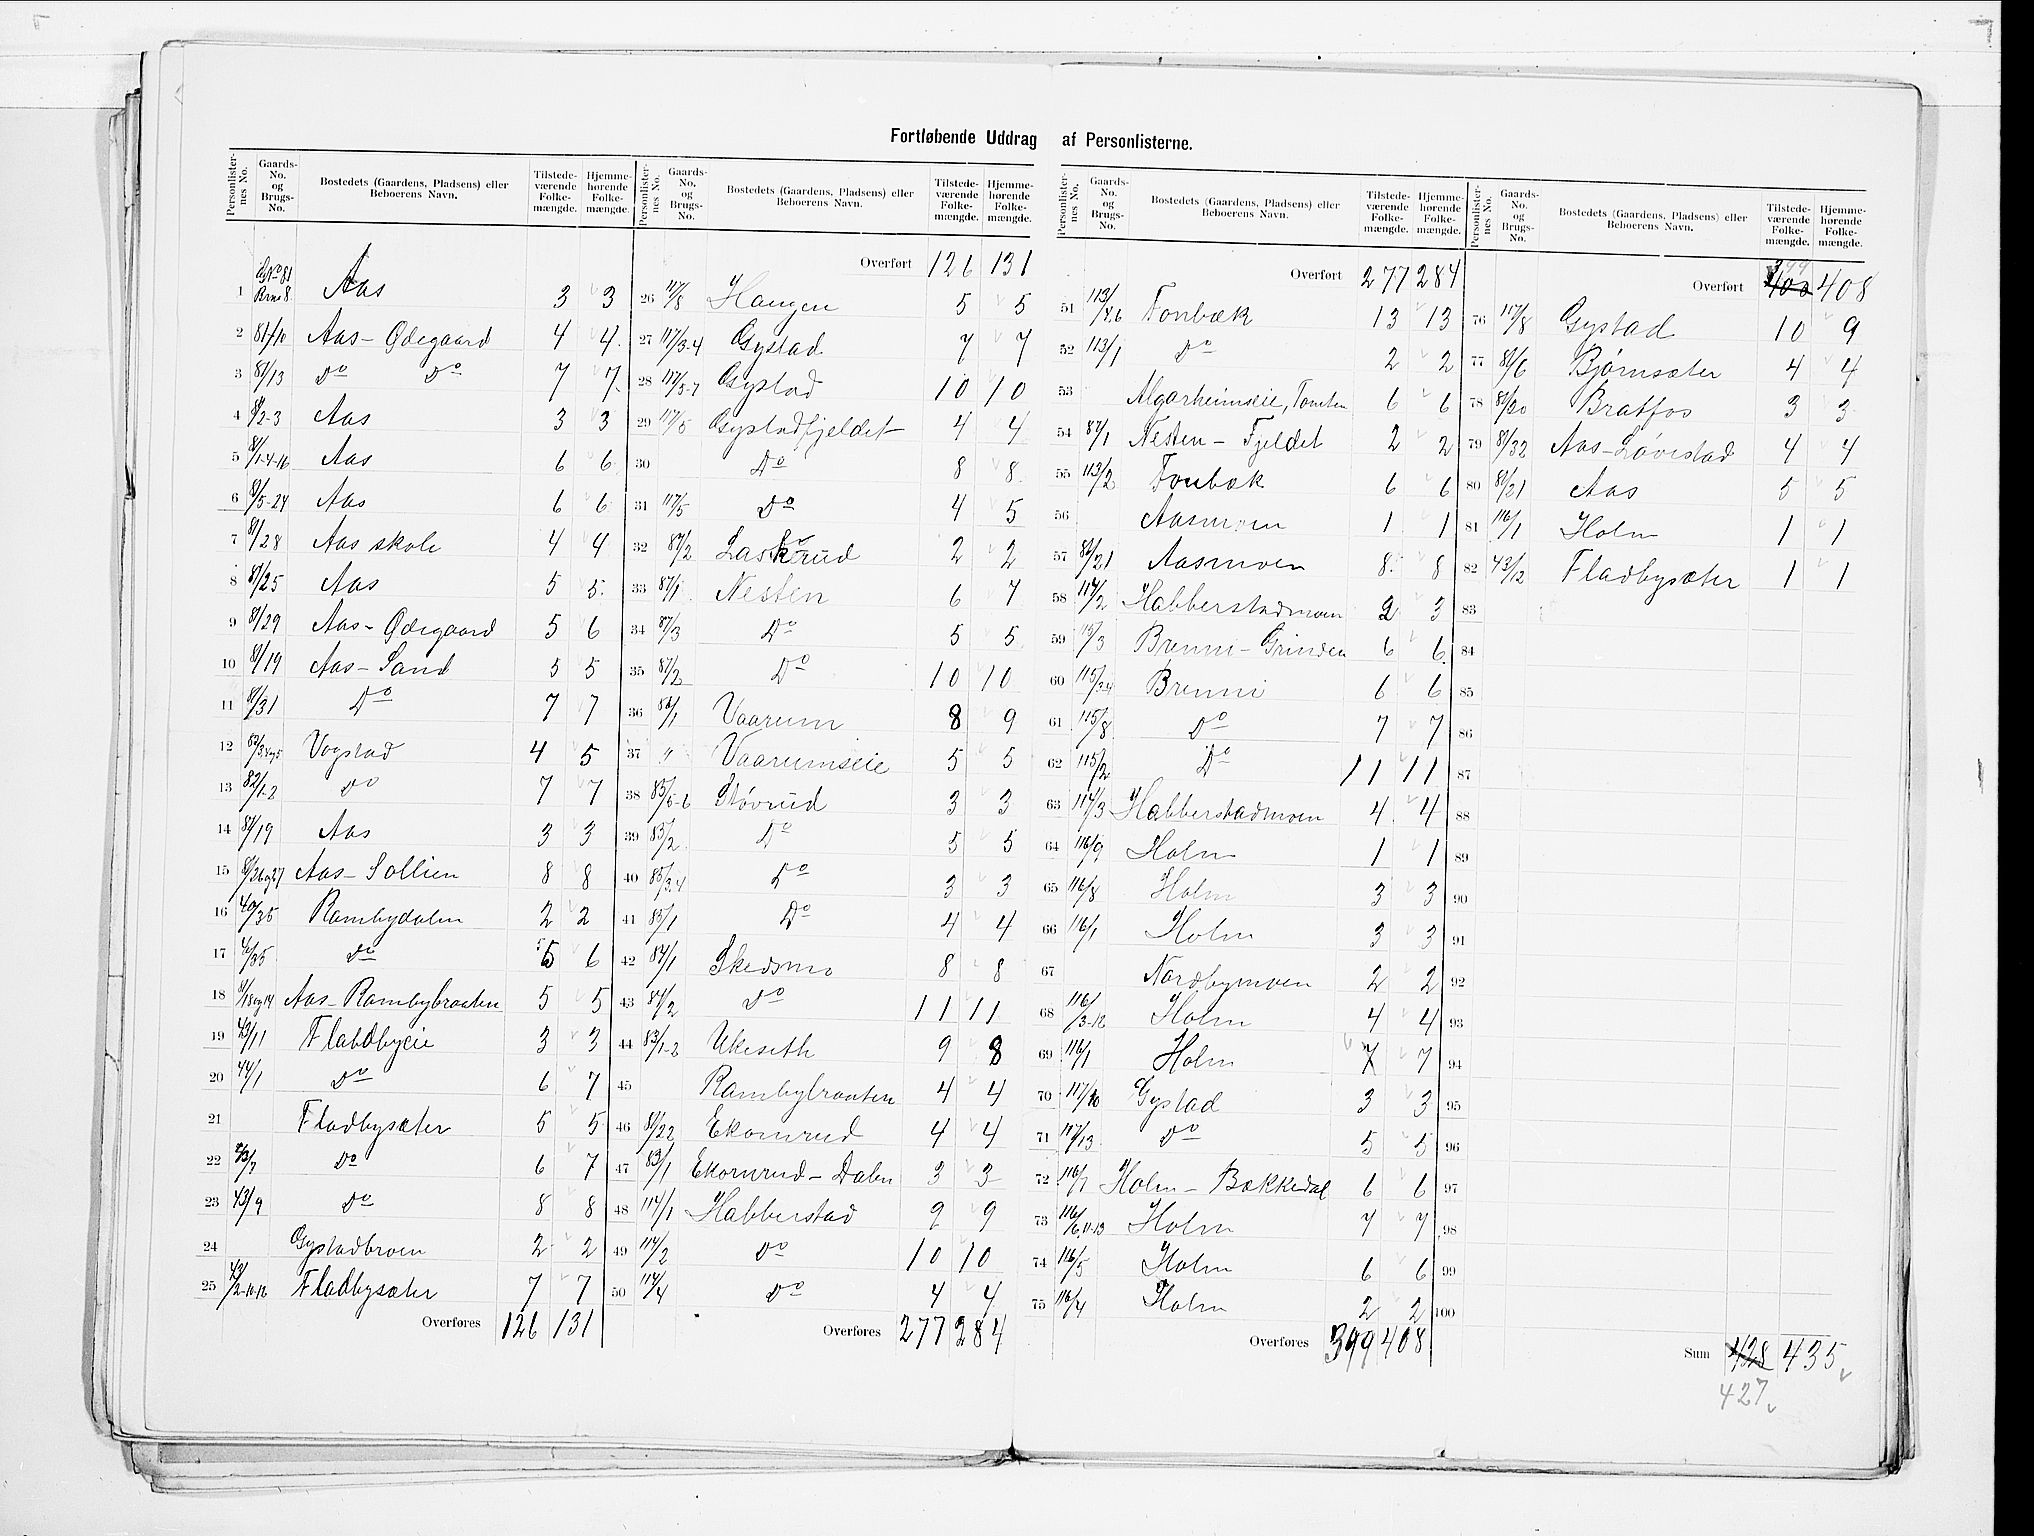 Fortløbende Uddrag af Personlisterne.
Personlisternes No. Gaards-No. og Brugs-No. Bostedets (Gaardens, Pladsens) eller Beboerens Navn. Tilstedeværende Folkemængde. Hjemmehørende Folkemængde.
1 Gno 81 Brno 8. Aas 3 3
2 81/10 Aas - Ødegaard 4 4
3 81/13 Do Do 7 7
4 81/2-3 Aas 3 3
5 81/1-4-16 Aas 6 6
6 81/5-24 Aas 6 6
7 81/28 Aas skole 4 4
8 81/25 Aas 5 5
9 81/29 Aas - Ødegaard 5 6
10 81/19 Aas - Sand 5 5
11 81/31 Do 7 7
12 82/3,4og5 Vogstad 4 5
13 82/1-2 Do 7 7
14 81/19 Aas 3 3
15 81/26og27 Aas - Sollien 8 8
16 40/35 Rambydalen 2 2
17 40/35 Do 5 6
18 81/18og14 Aas - Rambybraaten 5 5
19 43/11 Fladbyeie 3 3
20 44/1 Do 6 7
21 Fladbysæter 5 5
22 43/7 Do 6 7
23 43/9 Do 8 8
24 Gystadbroen 2 2
25 43/2-10-12 Fladbysæter 7 7
Overføres 126 131
Personlisternes No. Gaards-No. og Brugs-No. Bostedets (Gaardens, Pladsens) eller Beboerens Navn. Tilstedeværende Folkemængde. Hjemmehørende Folkemængde.
Overført 126 131
26 117/8 Haugen 5 5
27 117/3-4 Gystad 7 7
28 117/5-7 Gystad 10 10
29 117/5 Gystadfjeldet 4 4
30 Do 8 8
31 117/5 Do 4 5
32 87/2 Laskerud 2 2
33 87/1 Nesten 6 7
34 87/3 Do 5 5
35 87/2 Do 10 10
36 86/1 Vaarum 8 9
37 " Vaarumseie 5 5
38 85/5-6 Støvrud 3 3
39 85/2 Do 5 5
40 85/3.4 Do 3 3
41 85/1 Do 4 4
42 84/1 Skedsmo 8 8
43 84/2 Do 11 11
44 83/1-2 Ukeseth 9 8
45 Rambybraaten 4 4
46 81/22 Ekornrud 4 4
47 83/1 Ekornrud - Dalen 3 3
48 114/1 Habberstad 9 9
49 114/2 Do 10 10
50 114/4 Do 4 4
Overføres 277 284
Personlisternes No. Gaards-No. og Brugs-No. Bostedets (Gaardens, Pladsens) eller Beboerens Navn. Tilstedeværende Folkemængde. Hjemmehørende Folkemængde.
Overført 277 284
51 113/4.6 Fonbæk 13 13
52 113/1 Do 2 2
53 Algarheimseie, Tomten 6 6
54 87/1 Nesten - Fjeldet 2 2
55 113/2 Fonbæk 6 6
56 Aasmoen 1 1
57 81/21 Aasmoen 8 8
58 114/2 Habberstadmoen 2 3
59 115/3 Brenni - Grinden 6 6
60 115/3.4 Brenni 6 6
61 115/8 Do 7 7
62 115/2 Do 11 11
63 114/3 Habberstadmoen 4 4
64 116/9 Holm 1 1
65 116/8 Holm 3 3
66 116/1 Holm 3 3
67 Nordbymoen 2 2
68 116/3-12 Holm 4 4
69 116/1 Holm 7 7
70 117/10 Gystad 3 3
71 117/13 Do 5 5
72 116/7 Holm - Bækkedal 6 6
73 116/6,11-13 Holm 7 7
74 116/5 Holm 6 6
75 116/4 Holm 2 2
Overføres 399 408
Personlisternes No. Gaards-No. og Brugs-No. Bostedets (Gaardens, Pladsens) eller Beboerens Navn. Tilstedeværende Folkemængde. Hjemmehørende Folkemængde.
399
Overført 400 408
76 117/8 Gystad 10 9
77 81/6 Bjørnsæter 4 4
78 81/20 Bratfos 3 3
79 81/32 Aas - Løvestad 4 4
80 81/21 Aas 5 5
81 116/1 Holm 1 1
82 43/12 Fladbysæter 1 1
83
84
85
86
87
88
89
90
91
92
93
94
95
96
97
98
99
100
Sum 428 435
427